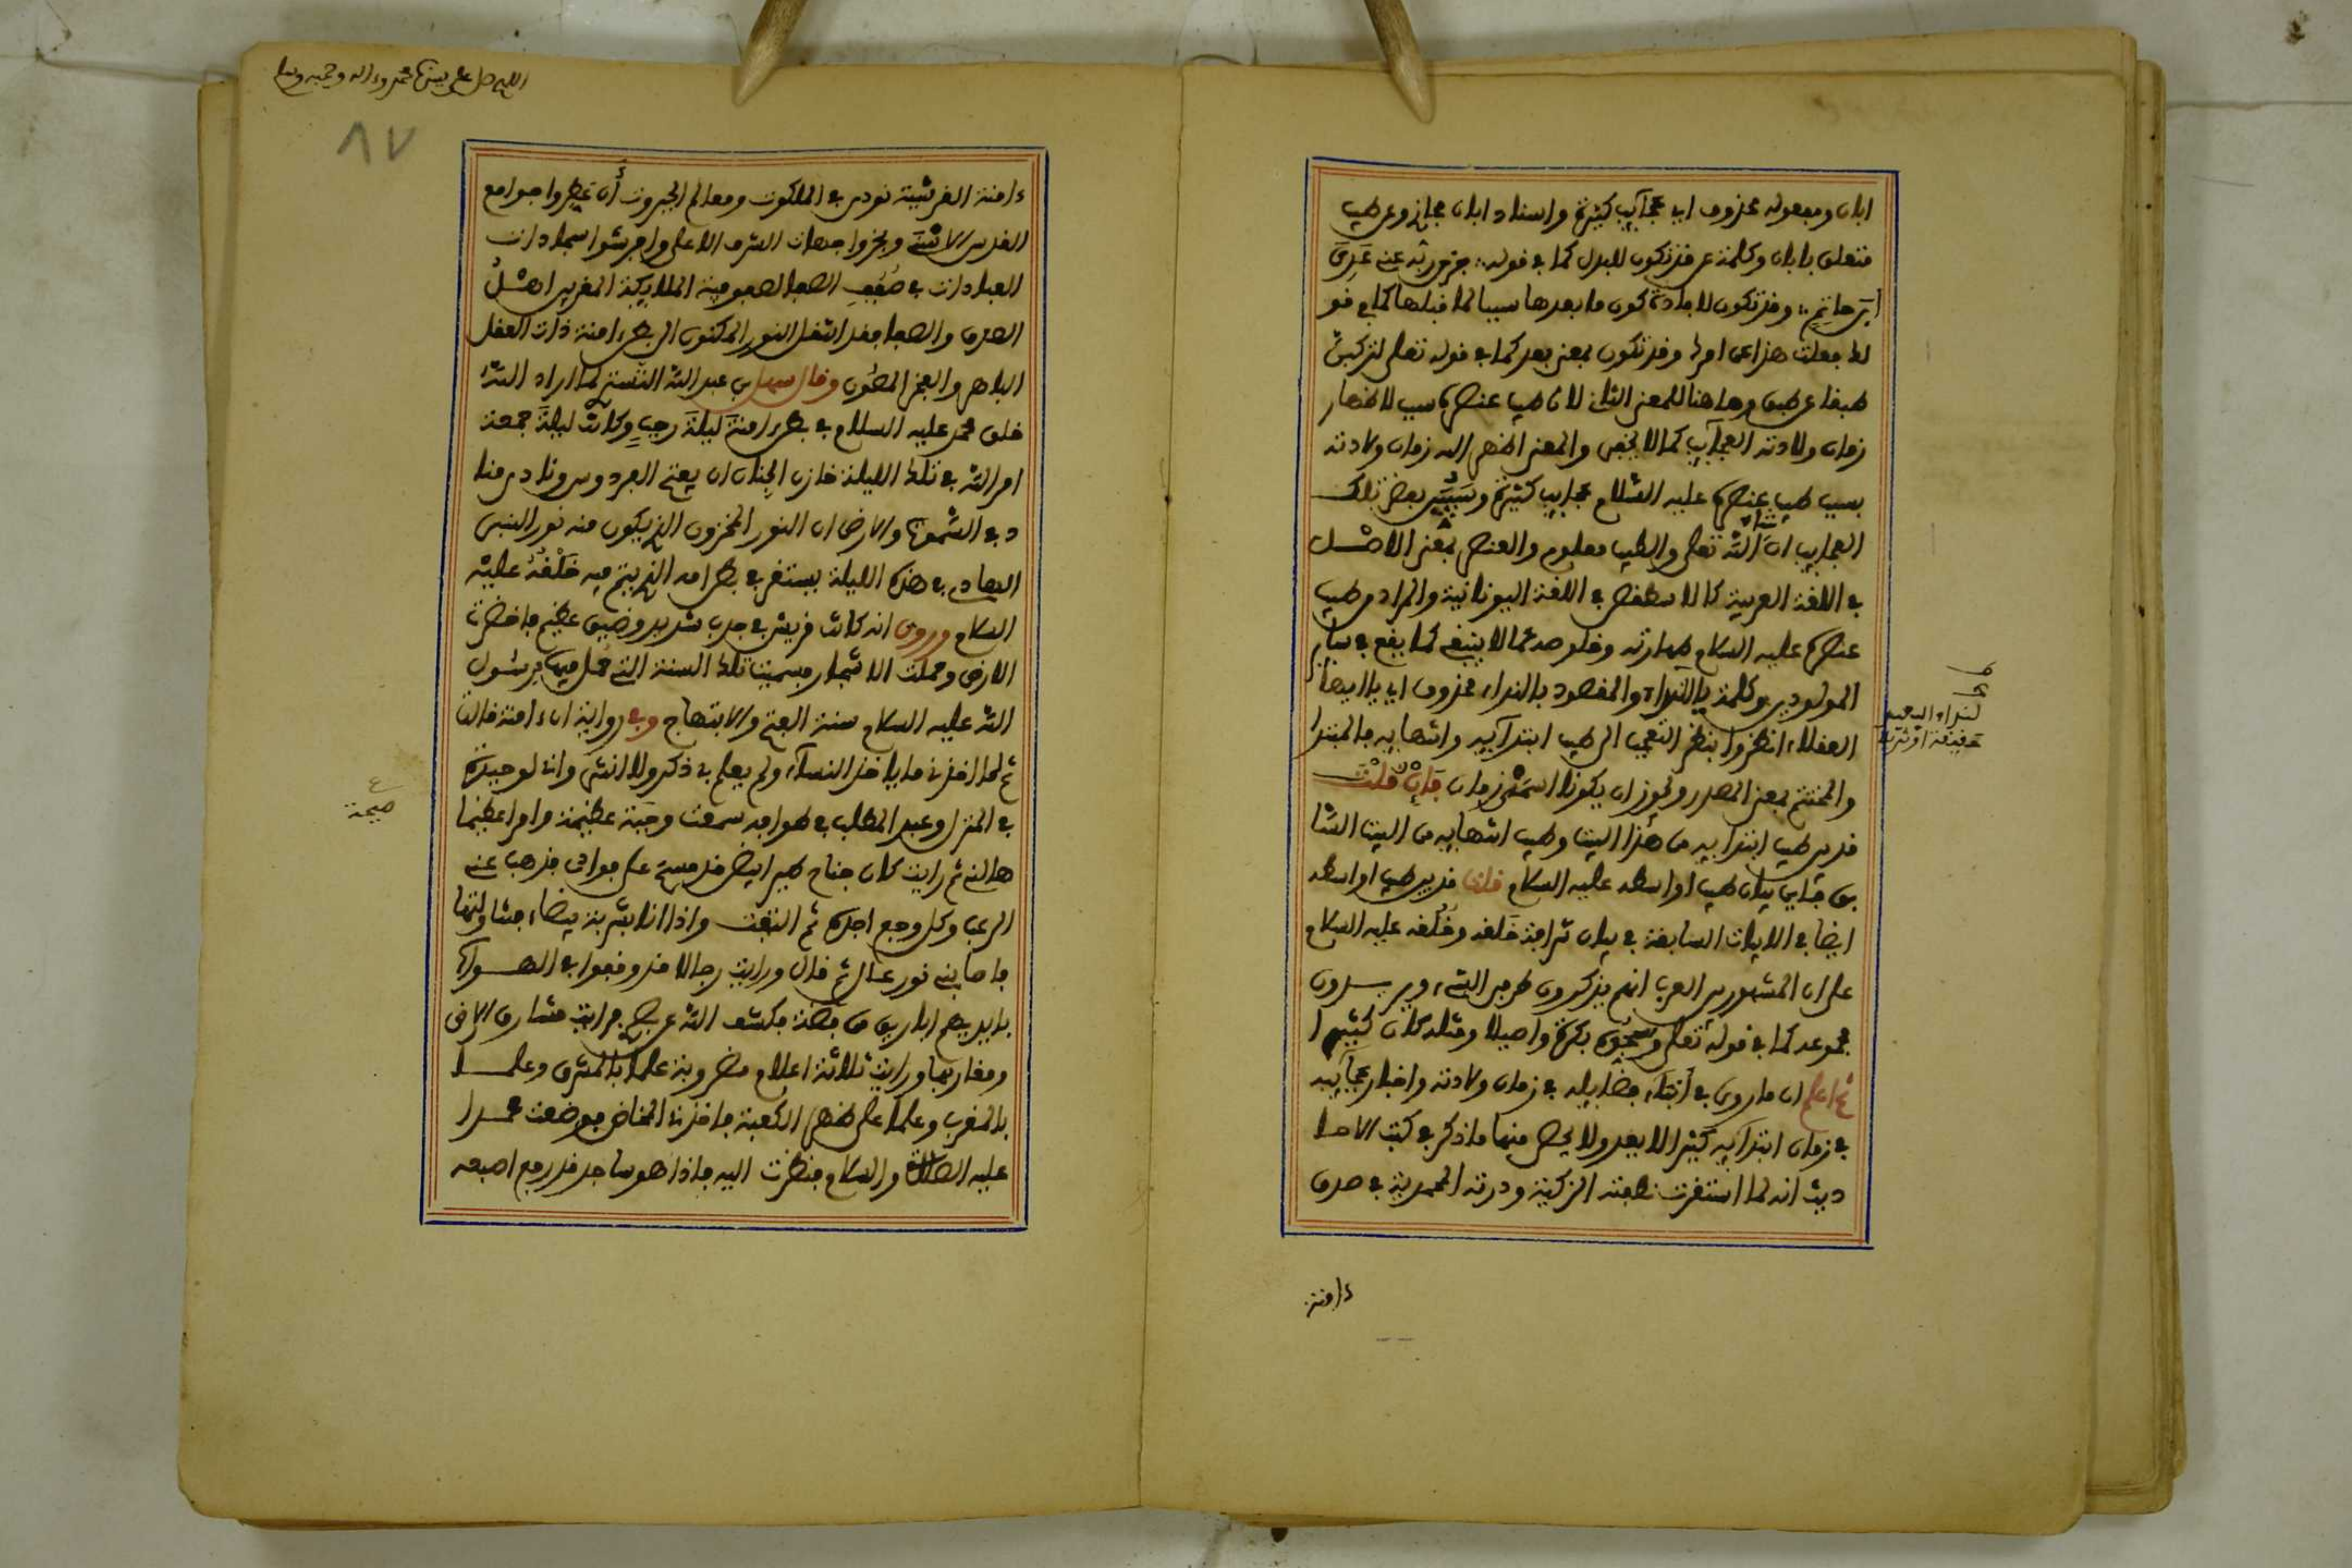 ابان ومفعوله محذوف اي عجآيب كثيرة واسناد ابان مجازي وعن طيب
متعلق بابان وكلمة عن قد تكون للبدل كما في قوله
وقد تكون لافادة كون ما بعدها سببا لما قبلها كما في قو
لك فعلت هذا عن امرك وقد تكون بمعنى بعد كما في قوله تعلى لتركبن
طبقا عن طبق وهاهنا للمعنى الثاني لان طيب عنصره سبب لاظهار
زمان ولادته العجآيب كما لا يخفى والمعنى اظهر الله زمان ولادته
بسبب طيب عنصره عليه السلام عجايب كثيرة وسنبين بعض تلك
العجايب ان شاء الله تعلى والطيب معلوم والعنصر بمعنى الاصل
في اللغة العربية كالاسطقس في اللغة اليونانية والمراد من طيب
عنصره عليه السلام طهارته وخلوصه عما لا ينبغي كما يقع في ساير
المولودين وكلمة يا للنداء والمقصود بالنداء محذوف اي يا ايها
العقلاء انظروا بنظر التعجب الى طيب ابتدآيه وانتهايه فالمبتدا
والمختتم بمعنى المصدر ويجوز ان يكونا اسمي زمان فإن قلت
قد بين طيب ابتدايه من هذا البيت وطيب انتهايه من البيت السا
بق فاين بيان طيب اواسطه عليه السلام قلنا قد بين طيب اواسطه
ايضا في الابيات السابقة في بيان شرافة خَلقه وخُلقه عليه السلام
على ان المشهور بين العرب انهم يذكرون طرفي الشيء ويريدون
مجموعه كما في قوله تعلى وسبحوه بكرة واصيلا ومثله كان كثيرا
ثم اعلم ان ما روي في أثناء فضايله في زمان ولادته واخبار عجآيب
في زمان ابتدآيه كثير لا يعد ولا يحصى منها ما ذكر في كتب الاحا
ديث انه لما استقرت نطفته الزكية ودرته المحمدية في صدف
ءامنة
لنداء البعيد
حقيقة او تنزيلا
اللهم صل على سيدنا محمد وءاله وصحبه وسلم
٨٧
ءامنة القرشية نودي في الملكوت ومعالم الجبروت أن عطروا جوامع
القدس الاسنى وبخروا جهات الشرف الاعلى وافرشوا سجادات
العبادات في صُفَف الصفا لصوفية الملايكة المقربين اهل
الصدق والصفا فقد انتقل النور المكنون الى بطن ءامنة ذات العقل
الباهر والفخر المصون وقال سهل بن عبد الله التستري لما اراد الله
خلق محمد عليه السلام في بطن ءامنة ليلة رجب وكانت ليلة جمعة
امر الله في تلك الليلة خازن الجنان ان يفتح الفردوس ونادى منا
د في السموات والارض ان النور المخزون الذي يكون منه نور النبي
الهادي في هذه الليلة يستقر في بطن امه الذي يتم فيه خَلْقُهُ عليه
السلام وروي انه كانت قريش في جدب شديد وضيق عظيم فاخضرت
الارض وحملت الاشجار فسميت تلك السنة التي حُمل فيها برسول
الله عليه السلام سنة الفتح والابتهاج وفي رواية ان ءامنة قالت
ثم لما اخذني ما ياخذ النسآء ولم يعلم بي ذكر ولا انثى واني لوحيدة
في المنزل وعبد المطلب في طوافه سمعت وجبة عظيمة وامرا عظيما
هالني ثم رايت كان جناح طير ابيض قد مسح على فوادي فذهب عني
الرعب وكل وجع اجده ثم التفت واذا انا بشربة بيضاء فتناولتها
فاصابني نور عال ثم قال ورايت رجالا قد وقفوا في الهواء
بايديهم اباريق من فضة فكشف الله عن بصري فرايت مشارق الارض
ومغاربها ورايت ثلاثة اعلام مضروبة علما بالمشرق وعلما
بالمغرب وعلما على ظهر الكعبة فاخذني المخاض فوضعت محمدا
عليه الصلاة والسلام فنظرت اليه فاذا هو ساجد قد رفع اصبعه
صيحة